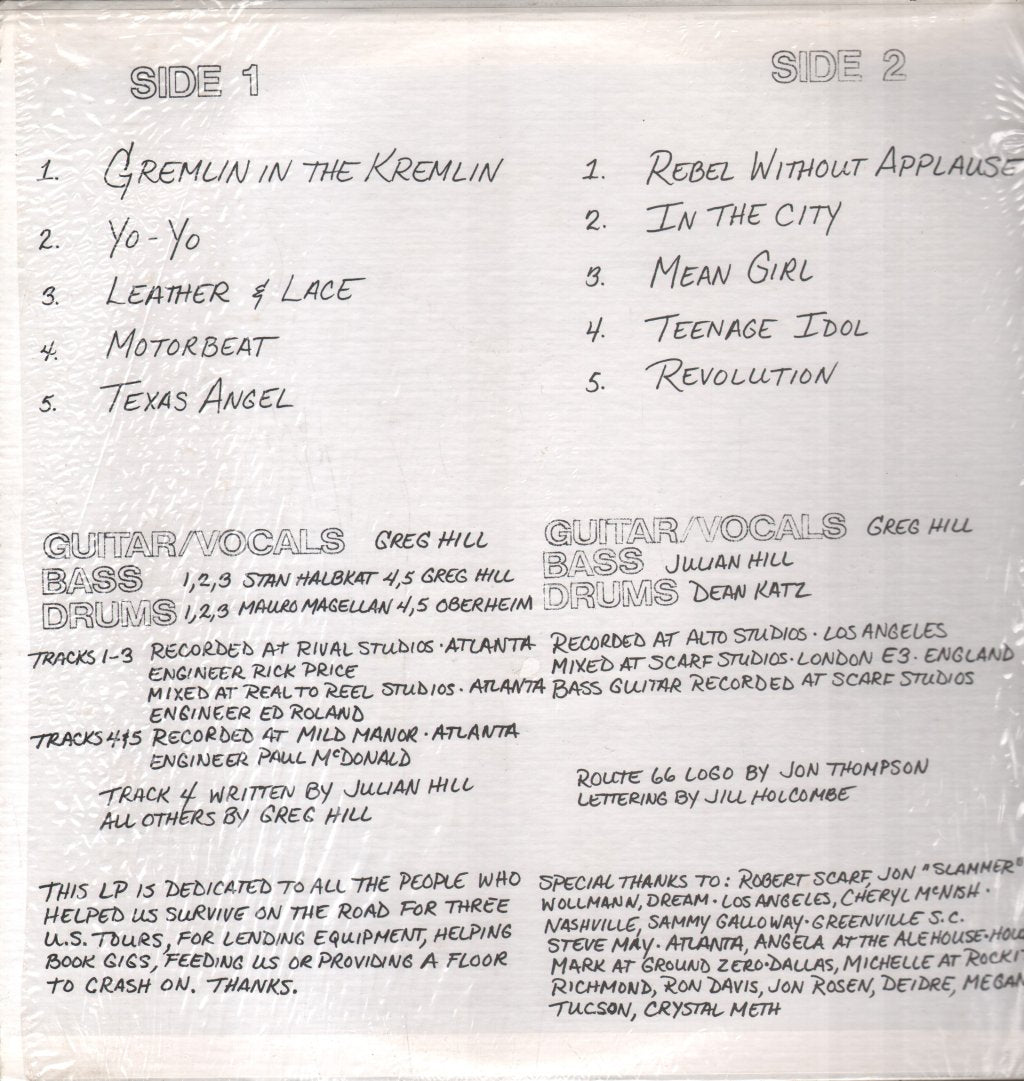 SIDE 1
1. GREMLIN IN THE KREMLIN
2. YO-YO
3. LEATHER & LACE
4. MOTORBEAT
5. TEXAS ANGEL
GUITAR/VOCALS GREG HILL
BASS 1,2,3 STAN HALBKAT 4,5 GREG HILL
DRUMS 1,2,3 MAURO MAGELLAN 4,5 OBERHEIM
TRACKS 1-3 RECORDED AT RIVAL STUDIOS · ATLANTA
ENGINEER RICK PRICE
MIXED AT REAL TO REEL STUDIOS · ATLANTA
ENGINEER ED ROLAND
TRACKS 4&5 RECORDED AT MILD MANOR · ATLANTA
ENGINEER PAUL McDONALD
TRACK 4 WRITTEN BY JULIAN HILL
ALL OTHERS BY GREG HILL
THIS LP IS DEDICATED TO ALL THE PEOPLE WHO
HELPED US SURVIVE ON THE ROAD FOR THREE
U.S. TOURS, FOR LENDING EQUIPMENT, HELPING
BOOK GIGS, FEEDING US OR PROVIDING A FLOOR
TO CRASH ON. THANKS.
SIDE 2
1. REBEL WITHOUT APPLAUSE
2. IN THE CITY
3. MEAN GIRL
4. TEENAGE IDOL
5. REVOLUTION
GUITAR/VOCALS GREG HILL
BASS JULIAN HILL
DRUMS DEAN KATZ
RECORDED AT ALTO STUDIOS · LOS ANGELES
MIXED AT SCARF STUDIOS · LONDON E3 · ENGLAND
BASS GUITAR RECORDED AT SCARF STUDIOS
ROUTE 66 LOGO BY JON THOMPSON
LETTERING BY JILL HOLCOMBE
SPECIAL THANKS TO: ROBERT SCARF, JON "SLAMMER"
WOLLMANN, DREAM · LOS ANGELES, CHERYL McNISH ·
NASHVILLE, SAMMY GALLOWAY · GREENVILLE S.C.
STEVE MAY · ATLANTA, ANGELA AT THE ALEHOUSE ·
MARK AT GROUND ZERO · DALLAS, MICHELLE AT
RICHMOND, RON DAVIS, JON ROSEN, DEIDRE, MEGAN
TUCSON, CRYSTAL METH